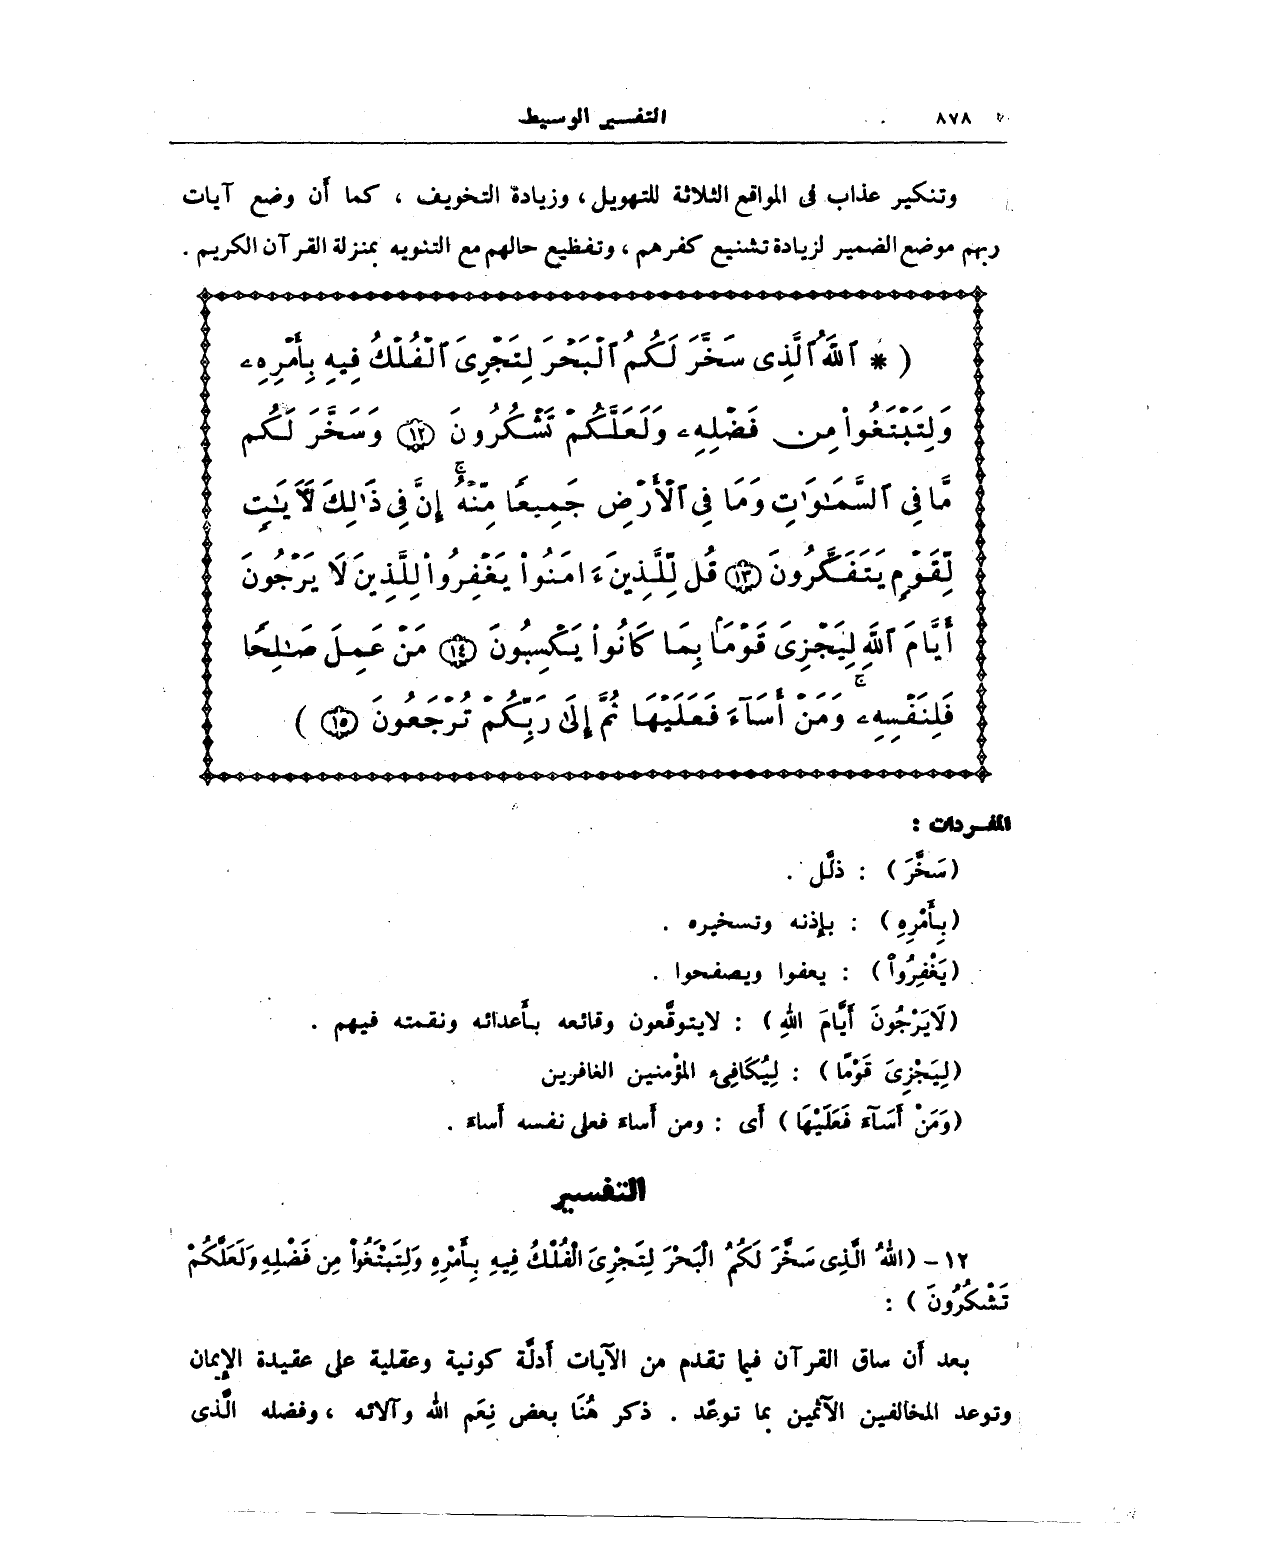 ٨٧٨ التفسير الوسيط
وتنكير عذاب فى المواقع الثلاثة للتهويل ، وزيادة التخويف ، كما أن وضع آيات
ربهم موضع الضمير لزيادة تشنيع كفرهم ، وتفظيع حالهم مع التنويه بمنزلة القرآن الكريم .
( * ٱللَّهُ ٱلَّذِى سَخَّرَ لَكُمُ ٱلْبَحْرَ لِتَجْرِىَ ٱلْفُلْكُ فِيهِ بِأَمْرِهِۦ
وَلِتَبْتَغُوا۟ مِن فَضْلِهِۦ وَلَعَلَّكُمْ تَشْكُرُونَ ﴿١٢﴾ وَسَخَّرَ لَكُم
مَّا فِى ٱلسَّمَٰوَٰتِ وَمَا فِى ٱلْأَرْضِ جَمِيعًا مِّنْهُ ۚ إِنَّ فِى ذَٰلِكَ لَآيَٰتٍ
لِّقَوْمٍ يَتَفَكَّرُونَ ﴿١٣﴾ قُل لِّلَّذِينَ ءَامَنُوا۟ يَغْفِرُوا۟ لِلَّذِينَ لَا يَرْجُونَ
أَيَّامَ ٱللَّهِ لِيَجْزِىَ قَوْمًۢا بِمَا كَانُوا۟ يَكْسِبُونَ ﴿١٤﴾ مَنْ عَمِلَ صَٰلِحًا
فَلِنَفْسِهِۦ ۖ وَمَنْ أَسَآءَ فَعَلَيْهَا ۖ ثُمَّ إِلَىٰ رَبِّكُمْ تُرْجَعُونَ ﴿١٥﴾ )
المفـردات :
(سَخَّرَ) : ذلَّل .
(بِأَمْرِهِ) : بإذنه وتسخيره .
(يَغْفِرُواْ) : يعفوا ويصفحوا .
(لَايَرْجُونَ أَيَّامَ اللهِ) : لايتوقَّعون وقائعه بأعدائه ونقمته فيهم .
(لِيَجْزِىَ قَوْمًا) : لِيُكَافِىء المؤمنين الغافرين
(وَمَنْ أَسَآءَ فَعَلَيْهَا) أى : ومن أساء فعلى نفسه أساء .
التفسير
١٢ - (اللهُ الَّذِى سَخَّرَ لَكُمُ الْبَحْرَ لِتَجْرِىَ الْفُلْكُ فِيهِ بِأَمْرِهِ وَلِتَبْتَغُواْ مِن فَضْلِهِ وَلَعَلَّكُمْ
تَشْكُرُونَ ) :
بعد أن ساق القرآن فيما تقدم من الآيات أدلَّة كونية وعقلية على عقيدة الإيمان
وتوعد المخالفين الآثمين بما توعّد . ذكر هُنَا بعض نِعَم الله وآلائه ، وفضله الَّذى